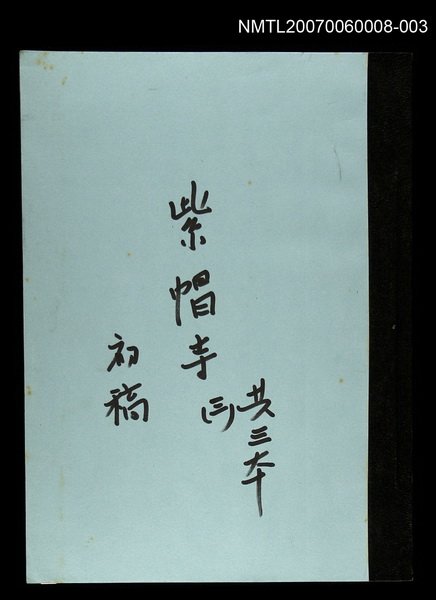 NMTL20070060008-003
共三本
紫帽寺
(三)
初稿